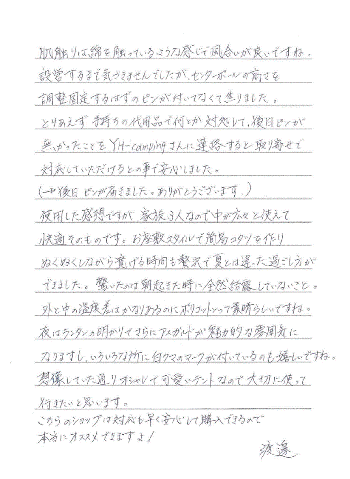 肌触りは綿を触っているような感じで風合いが良いですね。
設営するまで気づきませんでしたが、センターポールの高さを
調整固定するはずのピンが付いてなくて焦りました。
とりあえず手持ちの代用品で何とか対処して、後日ピンが
無かったことをYH-campingさんに連絡すると取り寄せて
対応していただけるとの事で安心しました。
(→後日ピンが届きました。ありがとうございます。)
使用した感想ですが、家族3人なので中が広々と使えて
快適そのものです。お座敷スタイルで簡易コタツを作り
ぬくぬくしながら寛げる時間も贅沢で夏とは違った過ごし方が
できました。驚いたのは朝起きた時に全然結露していないこと。
外と中の温度差はかなりあるのにポリコットンって素晴らしいですね。
夜はランタンの明かりでさらにアスガルドが魅力的な雰囲気に
なりますし、いろいろな所に白クマのマークが付いているのも嬉しいですね。
想像していた通りオシャレで可愛いテントなので大切に使って
行きたいと思います。
こちらのショップは対応も早く安心して購入できるので
本当にオススメできますよ!
渡邊